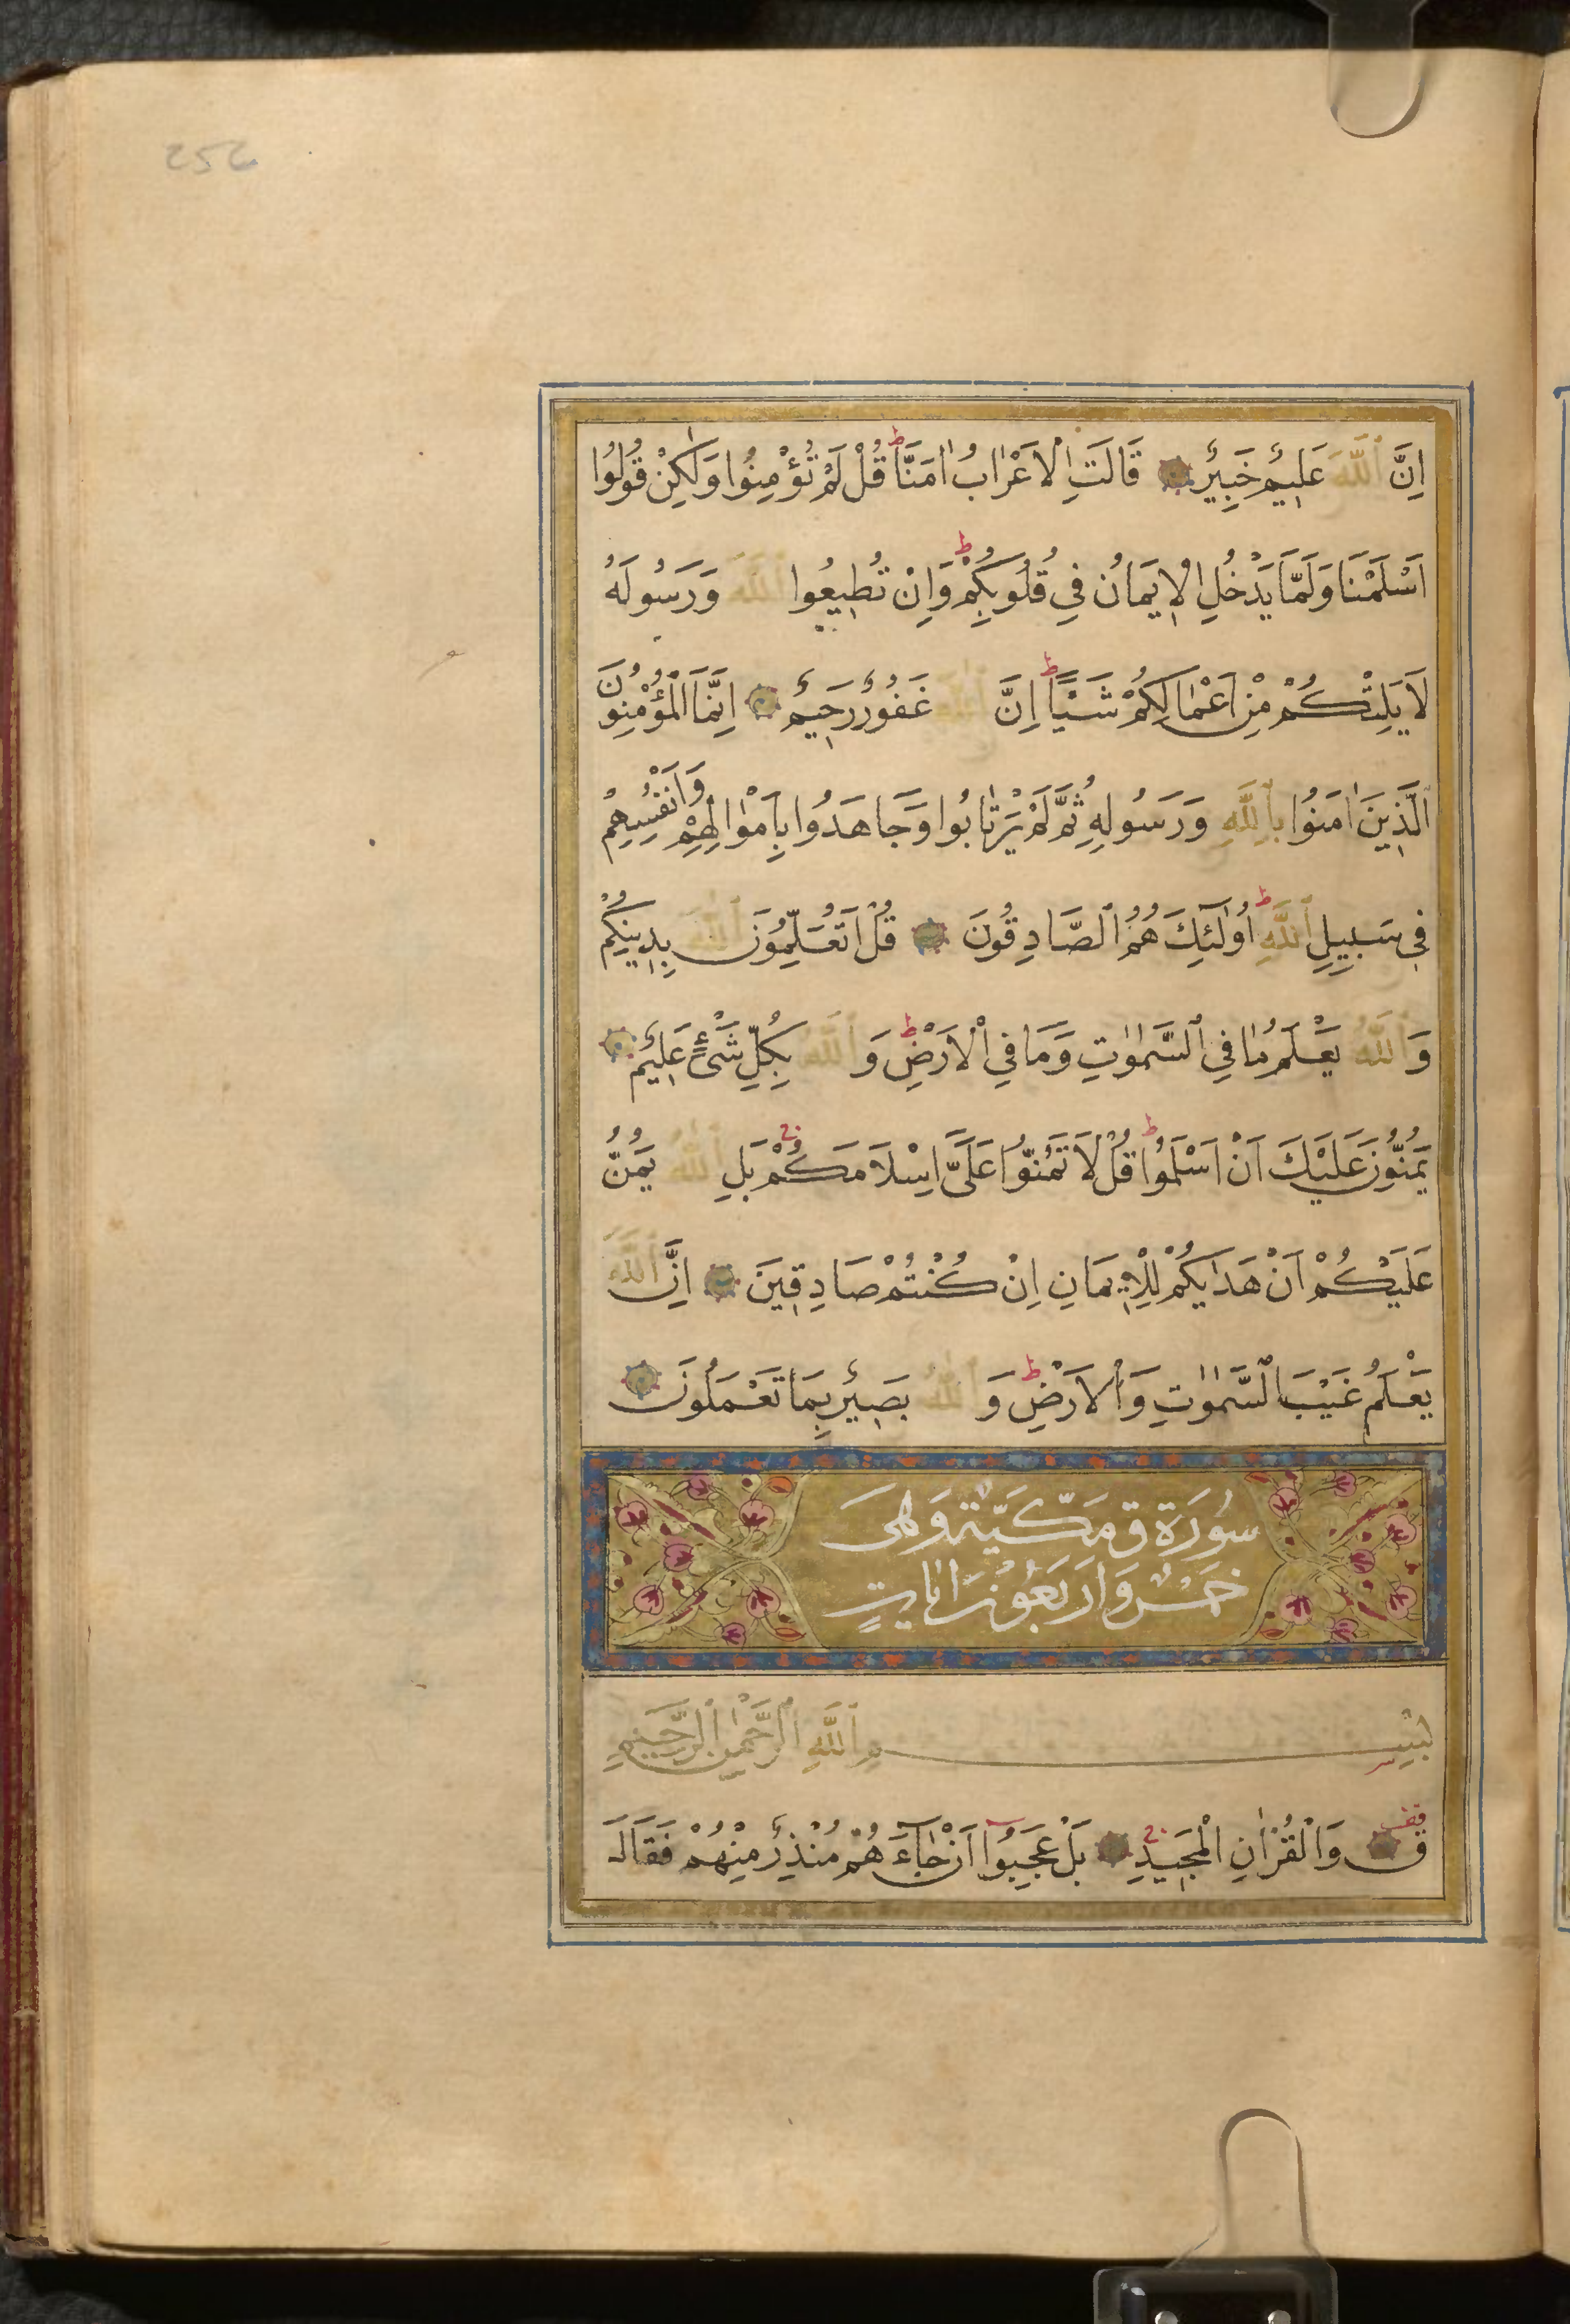 252
اِنَّ اللّٰهَ عَلِيمٌ خَبِيرٌ قَالَتِ الْاَعْرَابُ اٰمَنَّا ط قُلْ لَمْ تُؤْمِنُوا وَلٰكِنْ قُولُوا
اَسْلَمْنَا وَلَمَّا يَدْخُلِ الْاِيمَانُ فِي قُلُوبِكُمْ ط وَاِنْ تُطِيعُوا اللّٰهَ وَرَسُولَهُ
لَا يَلِتْكُمْ مِنْ اَعْمَالِكُمْ شَيْئًا ط اِنَّ اللّٰهَ غَفُورٌ رَحِيمٌ اِنَّمَا الْمُؤْمِنُونَ
الَّذِينَ اٰمَنُوا بِاللّٰهِ وَرَسُولِهِ ثُمَّ لَمْ يَرْتَابُوا وَجَاهَدُوا بِاَمْوَالِهِمْ وَاَنْفُسِهِمْ
فِي سَبِيلِ اللّٰهِ ط اُولٰئِكَ هُمُ الصَّادِقُونَ قُلْ اَتُعَلِّمُونَ اللّٰهَ بِدِينِكُمْ
وَاللّٰهُ يَعْلَمُ مَا فِي السَّمٰوَاتِ وَمَا فِي الْاَرْضِ ط وَاللّٰهُ بِكُلِّ شَيْءٍ عَلِيمٌ
يَمُنُّونَ عَلَيْكَ اَنْ اَسْلَمُوا ط قُلْ لَا تَمُنُّوا عَلَيَّ اِسْلَامَكُمْ ج بَلِ اللّٰهُ يَمُنُّ
عَلَيْكُمْ اَنْ هَدٰيكُمْ لِلْاِيمَانِ اِنْ كُنْتُمْ صَادِقِينَ اِنَّ اللّٰهَ
يَعْلَمُ غَيْبَ السَّمٰوَاتِ وَالْاَرْضِ ط وَاللّٰهُ بَصِيرٌ بِمَا تَعْمَلُونَ
سُورَة ق مَكِّيَّة وَهِيَ
خَمْسٌ وَاَرْبَعُونَ اٰيَاتٍ
بِسْمِ اللّٰهِ الرَّحْمٰنِ الرَّحِيمِ
ق وَالْقُرْاٰنِ الْمَجِيدِ ج بَلْ عَجِبُوا اَنْ جَاءَهُمْ مُنْذِرٌ مِنْهُمْ فَقَالَ